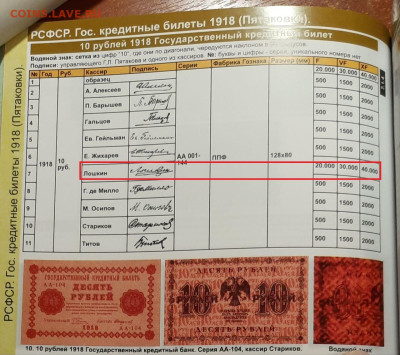 COINS.SU
РСФСР. Гос. кредитные билеты 1918 (Пятаковки).
10 рублей 1918 Государственный кредитный билет
Водяной знак: сетка из цифр "10", где они по диагонали, чередуются наклоном
Подписи: управляющего Г.Л. Пятакова и одного из кассиров. №: буквы и цифры серии, уникального номера нет
№ Год Руб Кассир Подпись Серии Фабрика Гознака Размер (мм) F VF XF
1 образец 20.000 30.000 40.000
2 А. Алексеев 500 1500 2000
3 П. Барышев 500 1500 2000
4 Гальцов 500 1500 2000
5 Ев. Гейльман 500 1500 2000
6 1918 10 руб. Е. Жихарев АА 001- ППФ 128x80 500 1500 2000
7 Лошкин 20.000 30.000 40.000
8 Г. де Милло 500 1500 2000
9 М. Осипов 500 1500 2000
10 Стариков 500 1500 2000
11 Титов 500 1500 2000
РСФСР. Гос. кредитные билеты 1918 (Пятаковки).
ГОСУДАРСТВЕННЫЙ КРЕДИТНЫЙ БИЛЕТ
АА-104
ДЕСЯТЬ
РУБЛЕЙ
1918
АА-104
10
10
10. 10 рублей 1918 Государственный банк. Серия АА-104, кассир Стариков.
Водяной знак